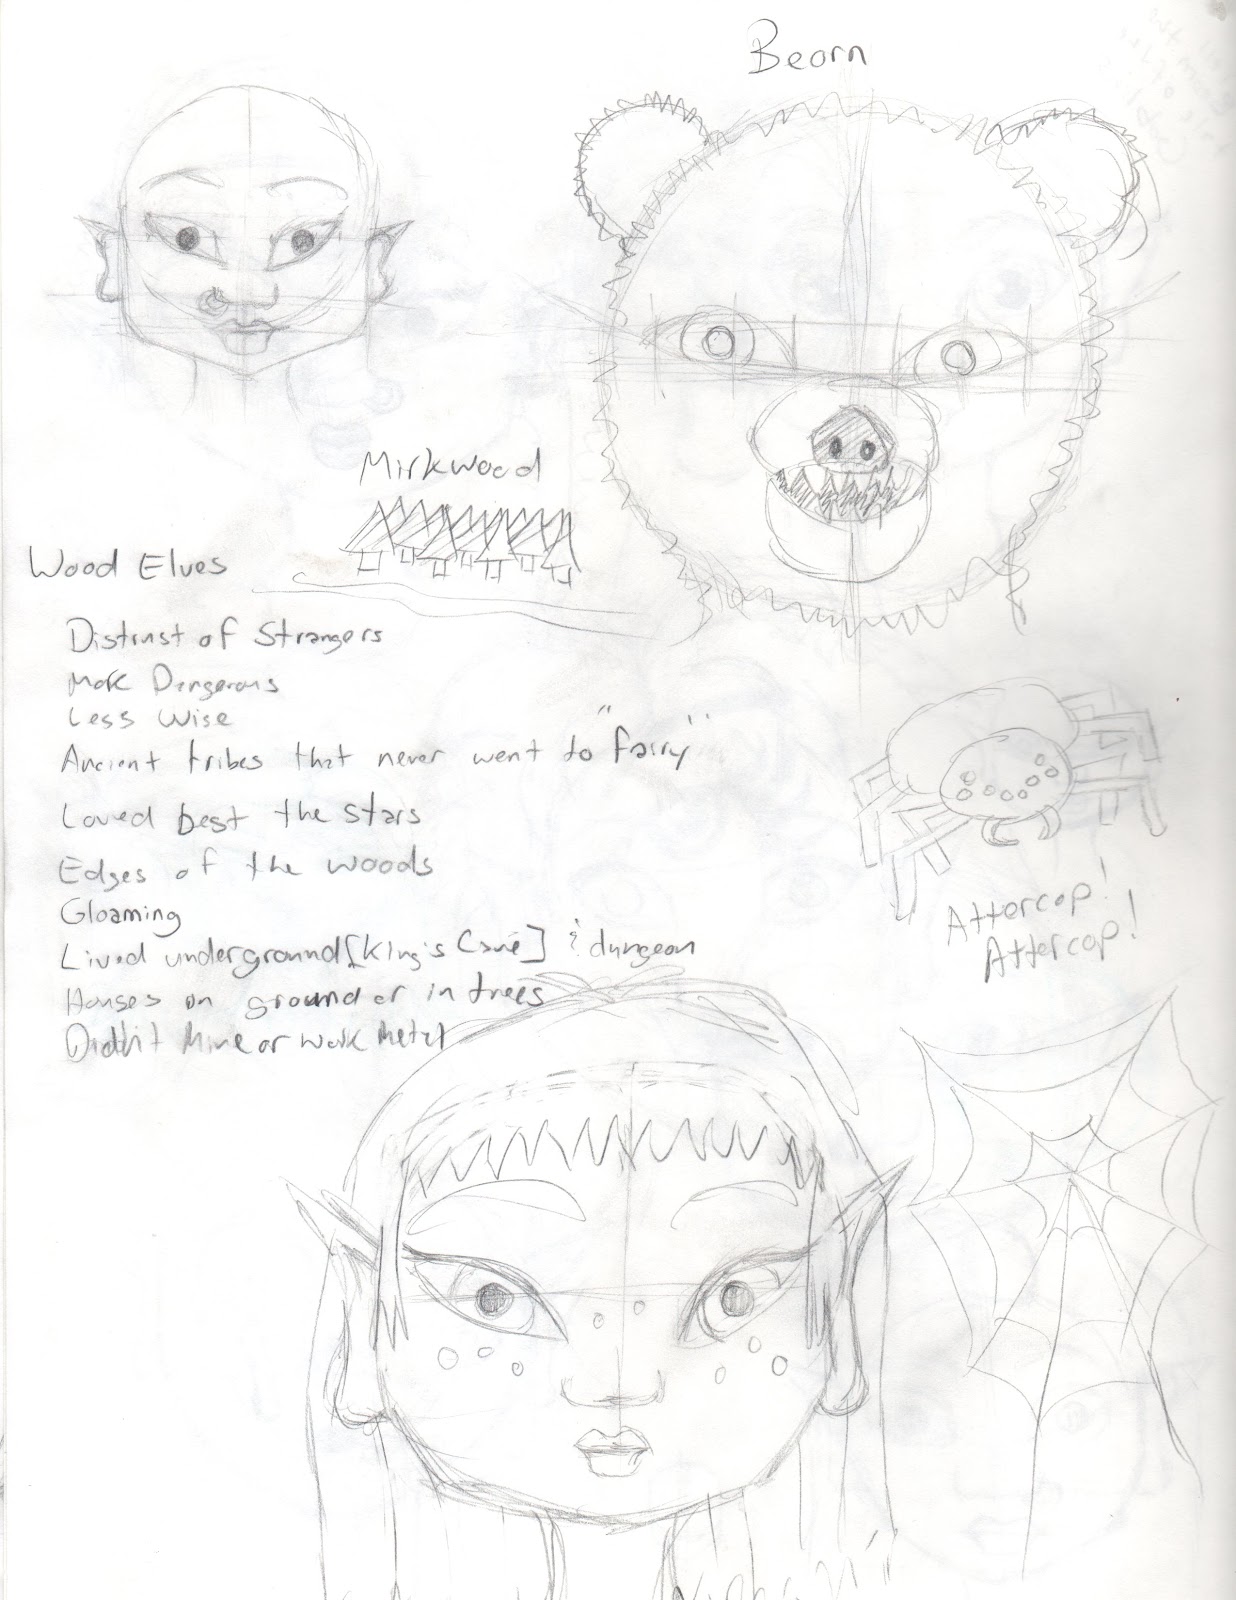 Beorn
Mirkwood
Wood Elves
Distrust of Strangers
More Dangerous
Less Wise
Ancient tribes that never went to "fairy"
Loved best the stars
Edges of the woods
Gloaming
Lived underground [King's Cave] & dungeon
Houses on ground or in trees
Didn't Mine or work Metal
Attercop!
Attercop!